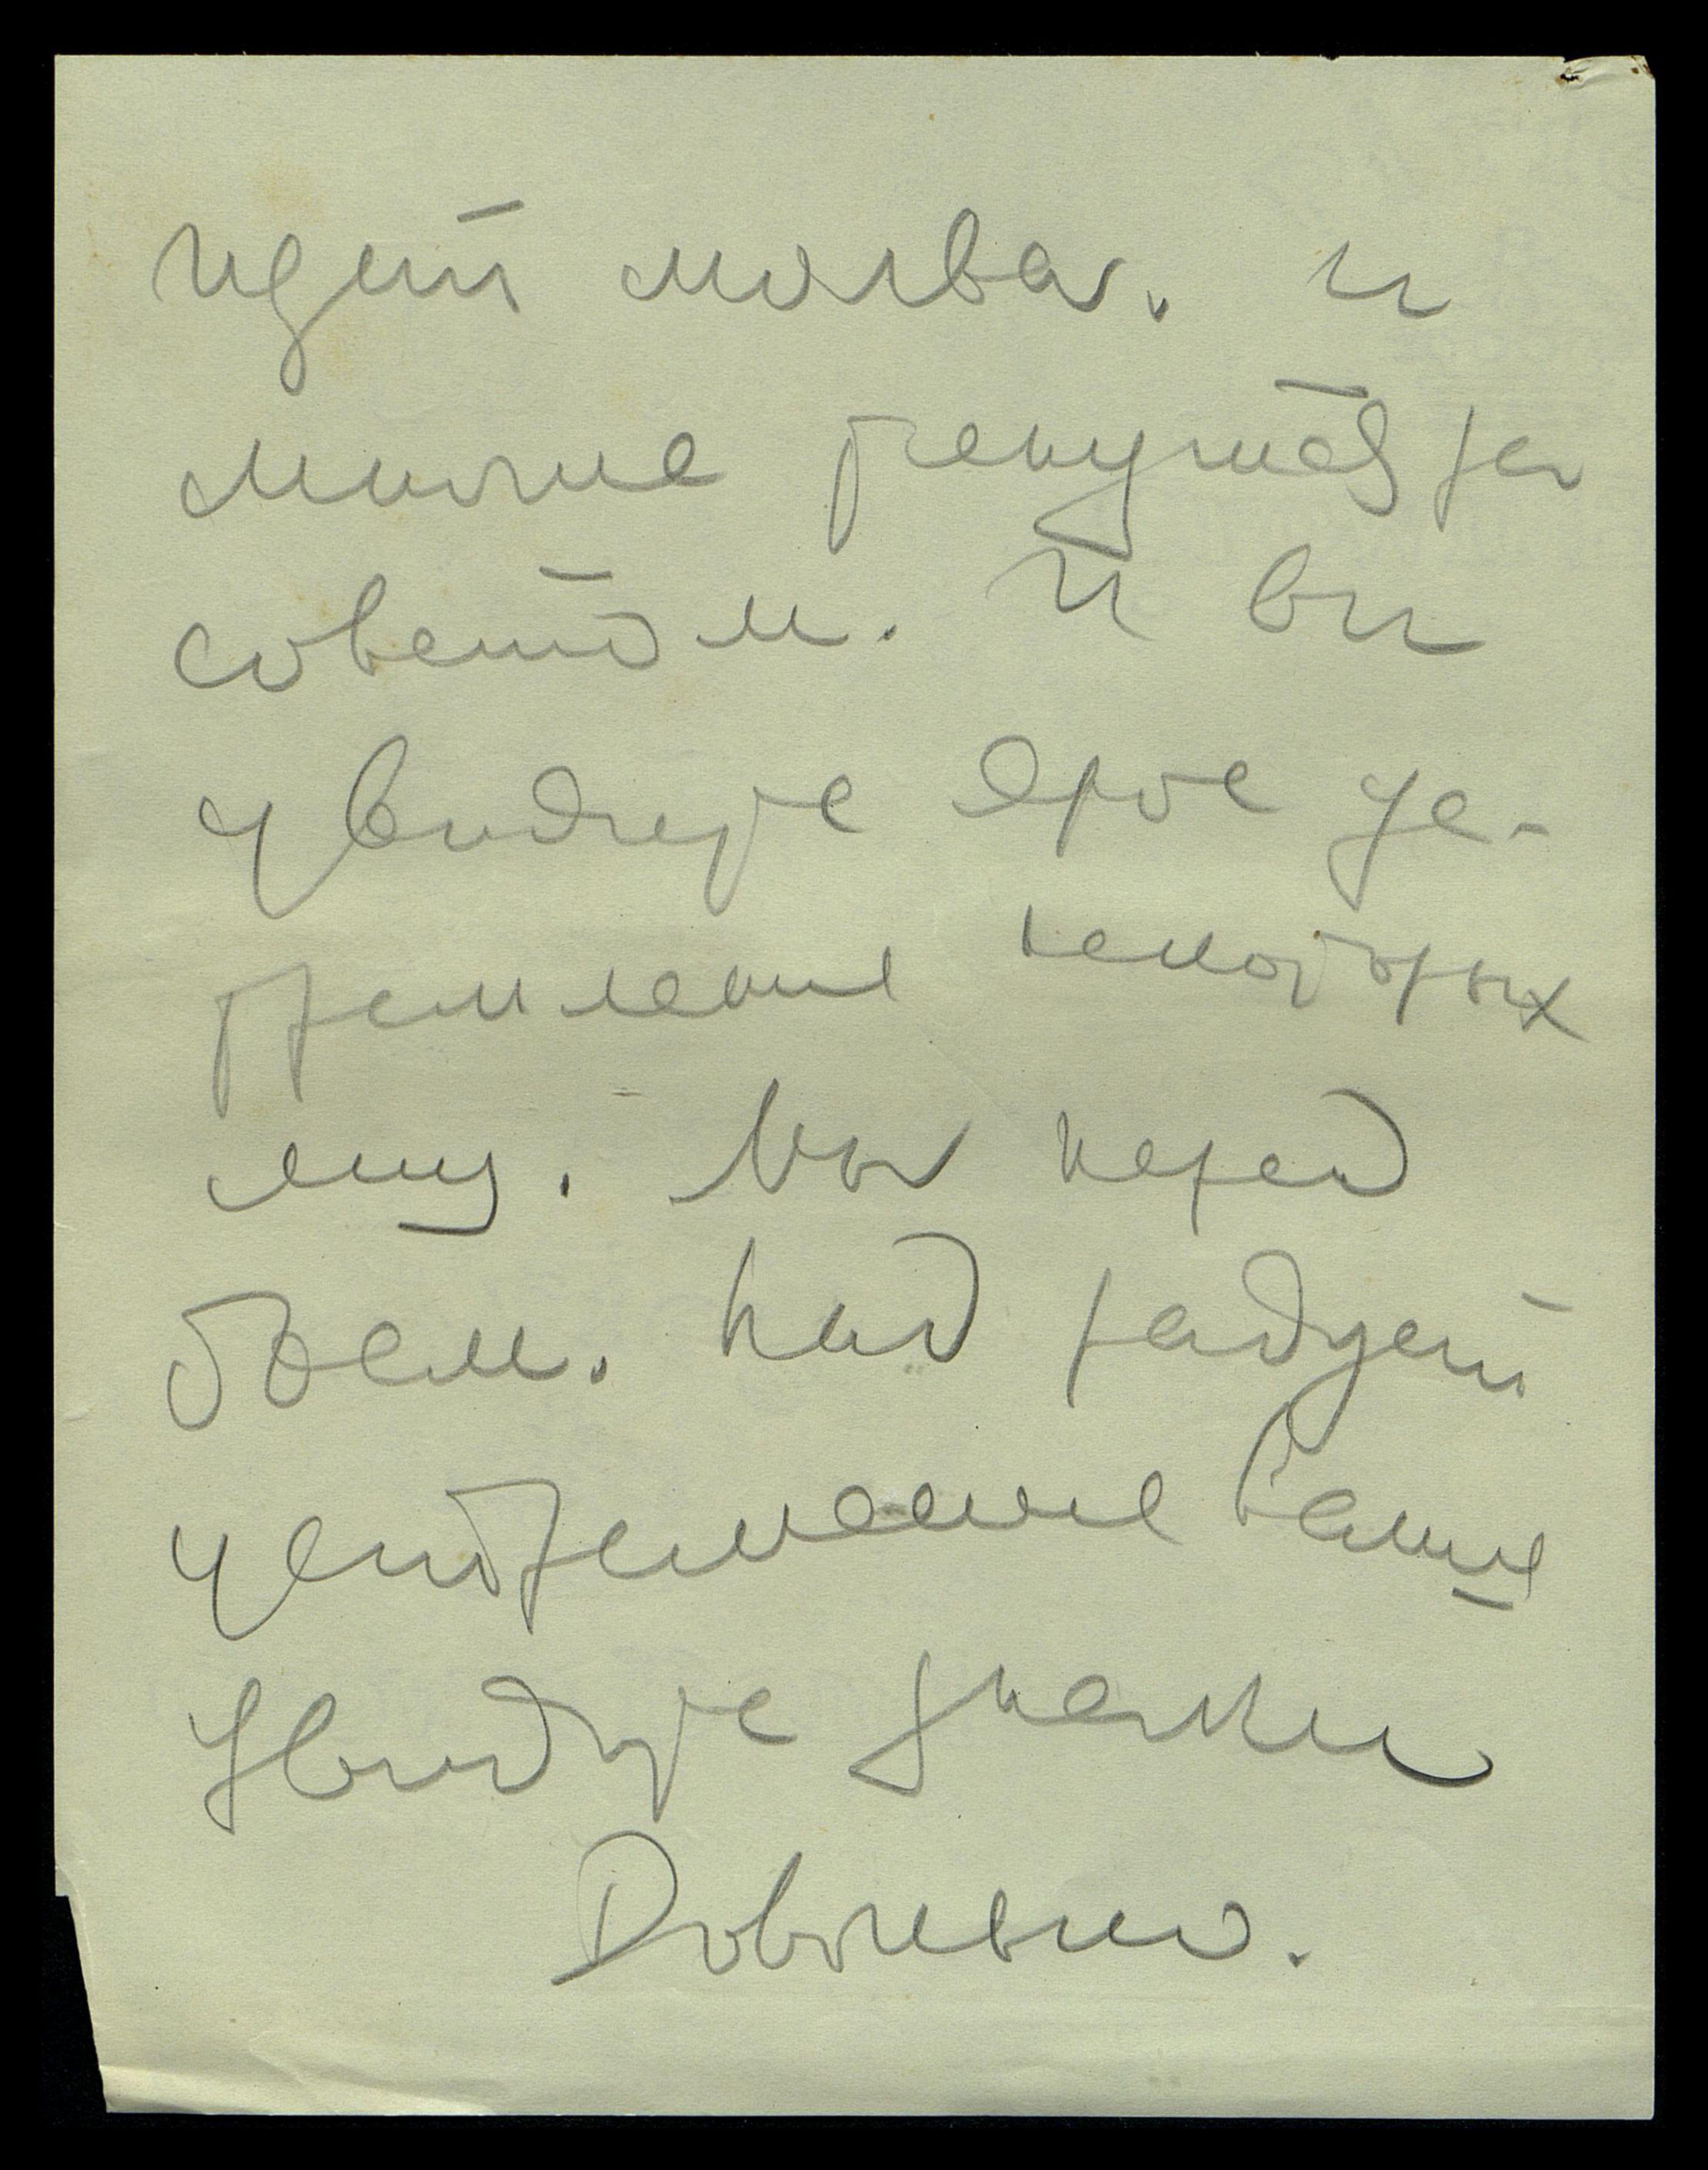 идет молва. и
многие тянутся за
советом. И вы
увидите ярое ус-
тремление некоторых
лиц. Мы перед
боем. Нас радует
устремление ваше
Увидите знаки
Довольно.